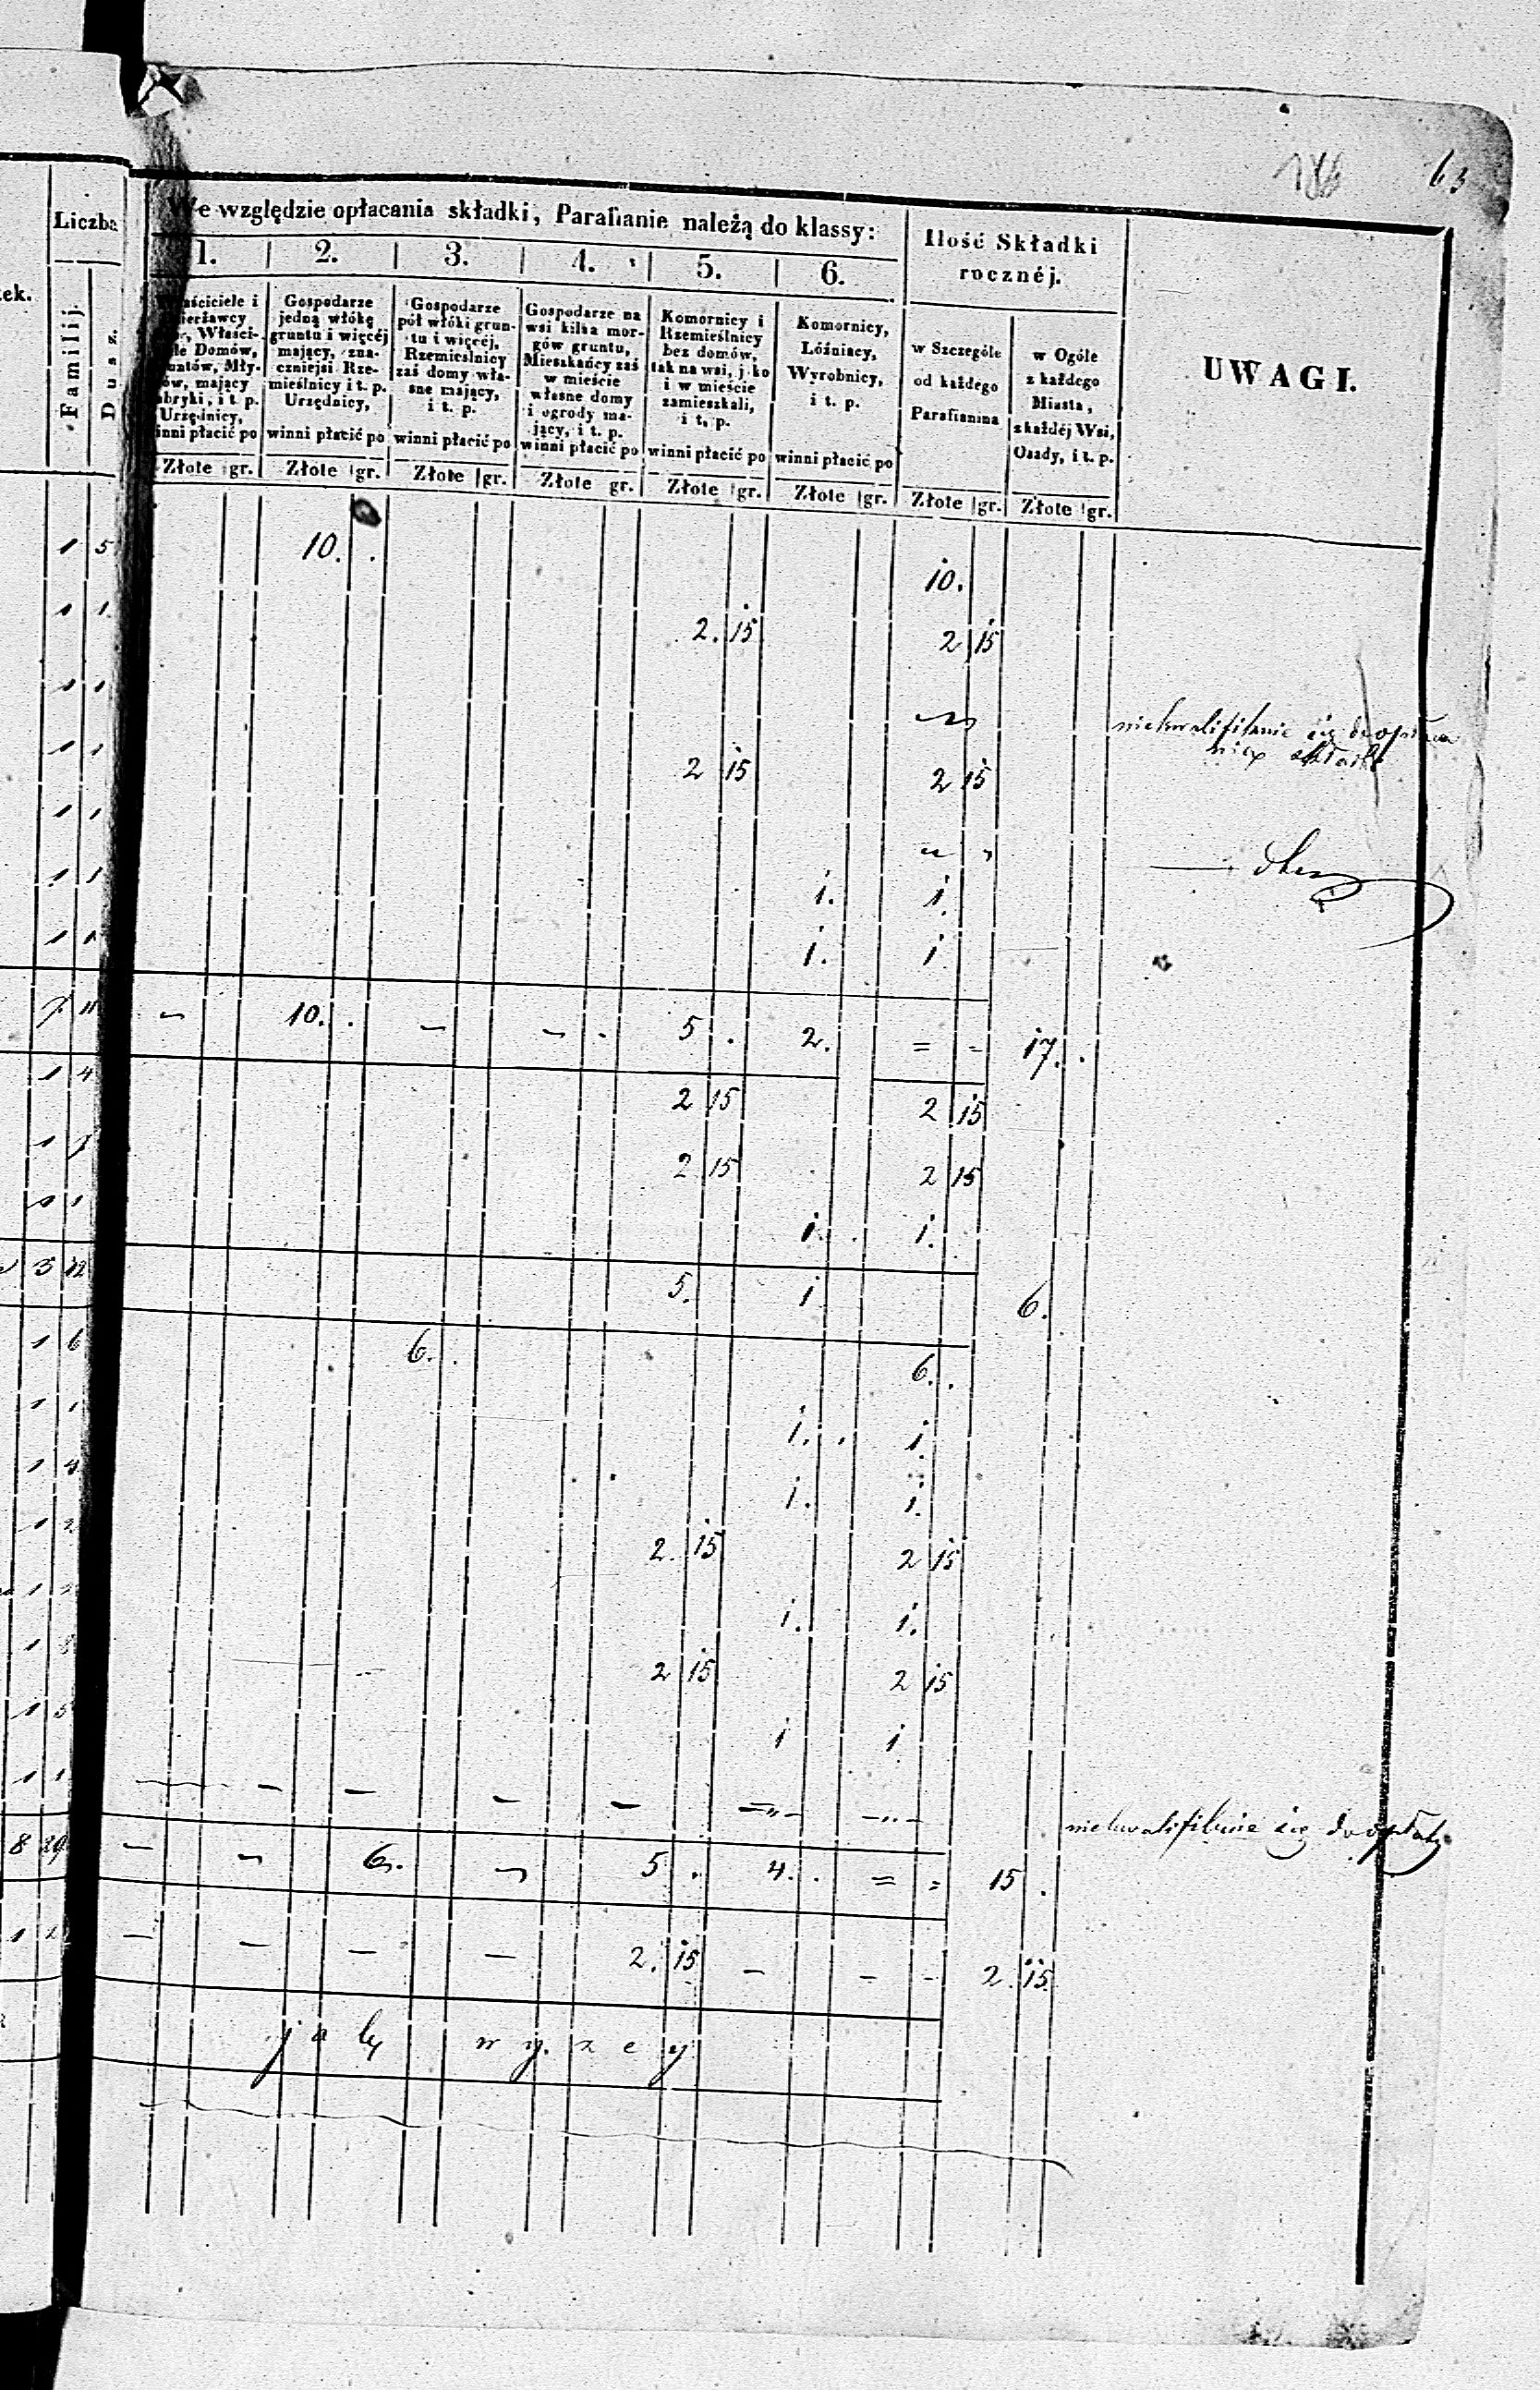 186 63
We względzie opłacania składki, Parafianie należą do klassy:
Liczba
Ilość Składki
rocznéj.
UWAGI.
1. 2. 3. 4. 5. 6.
ek.
Familij.
Dusz.
Właściciele i
Dzierżawcy
Właści-
Domów,
Mły-
mający
i t. p.
Urzędnicy,
winni płacić po
Złote gr.
Gospodarze
jedną włókę
gruntu i więcéj
mający, zna-
czniejsi Rze-
mieślnicy i t. p.
Urzędnicy,
winni płacić po
Złote gr.
Gospodarze
pół włóki grun-
tu i więcéj,
Rzemieslnicy
zaś domy wła-
sne mający,
i t. p.
winni płacić po
Złote gr.
Gospodarze na
wsi kilka mor-
gów gruntu,
Mieszkańcy zaś
w mieście
własne domy
i ogrody ma-
jący, i t. p.
winni płacić po
Złote gr.
Komornicy i
Rzemieślnicy
bez domów,
tak na wsi, jako
i w mieście
zamieszkali,
i t. p.
winni płacić po
Złote gr.
Komornicy,
Lóźniacy,
Wyrobnicy,
i t. p.
winni płacić po
Złote gr.
w Szczególe
od każdego
Parafianina
Złote gr.
w Ogóle
z każdego
Miasta,
z każdéj Wsi,
Osady, i t. p.
Złote gr.
1 5 10. . 10.
1 1 2. 15 2 15
1 1 niekwalifikuje się do opłaca
nia składki
1 1 2 15 2 15
1 1
1 1 1. 1.
1 1 1. 1
7 11 – 10. . – – 5 . 2. = = 17. .
1 4 2 15 2 15
1 2 15 2 15
1 1 1. . 1.
3 12 5. 1 6.
1 6 6. . 6. .
1 1 1. . 1
1 4 1. 1.
1 2 2. 15 2 15
1 2 1. 1.
1 2 15 2 15
1 5 1 1
1 1 – – – – – – niekwalifikuje się do opłaty
8 29 – – 6. – 5 . 4. . = = 15 .
1 – – – – 2. 15 – – – 2. 15
jak wyżey